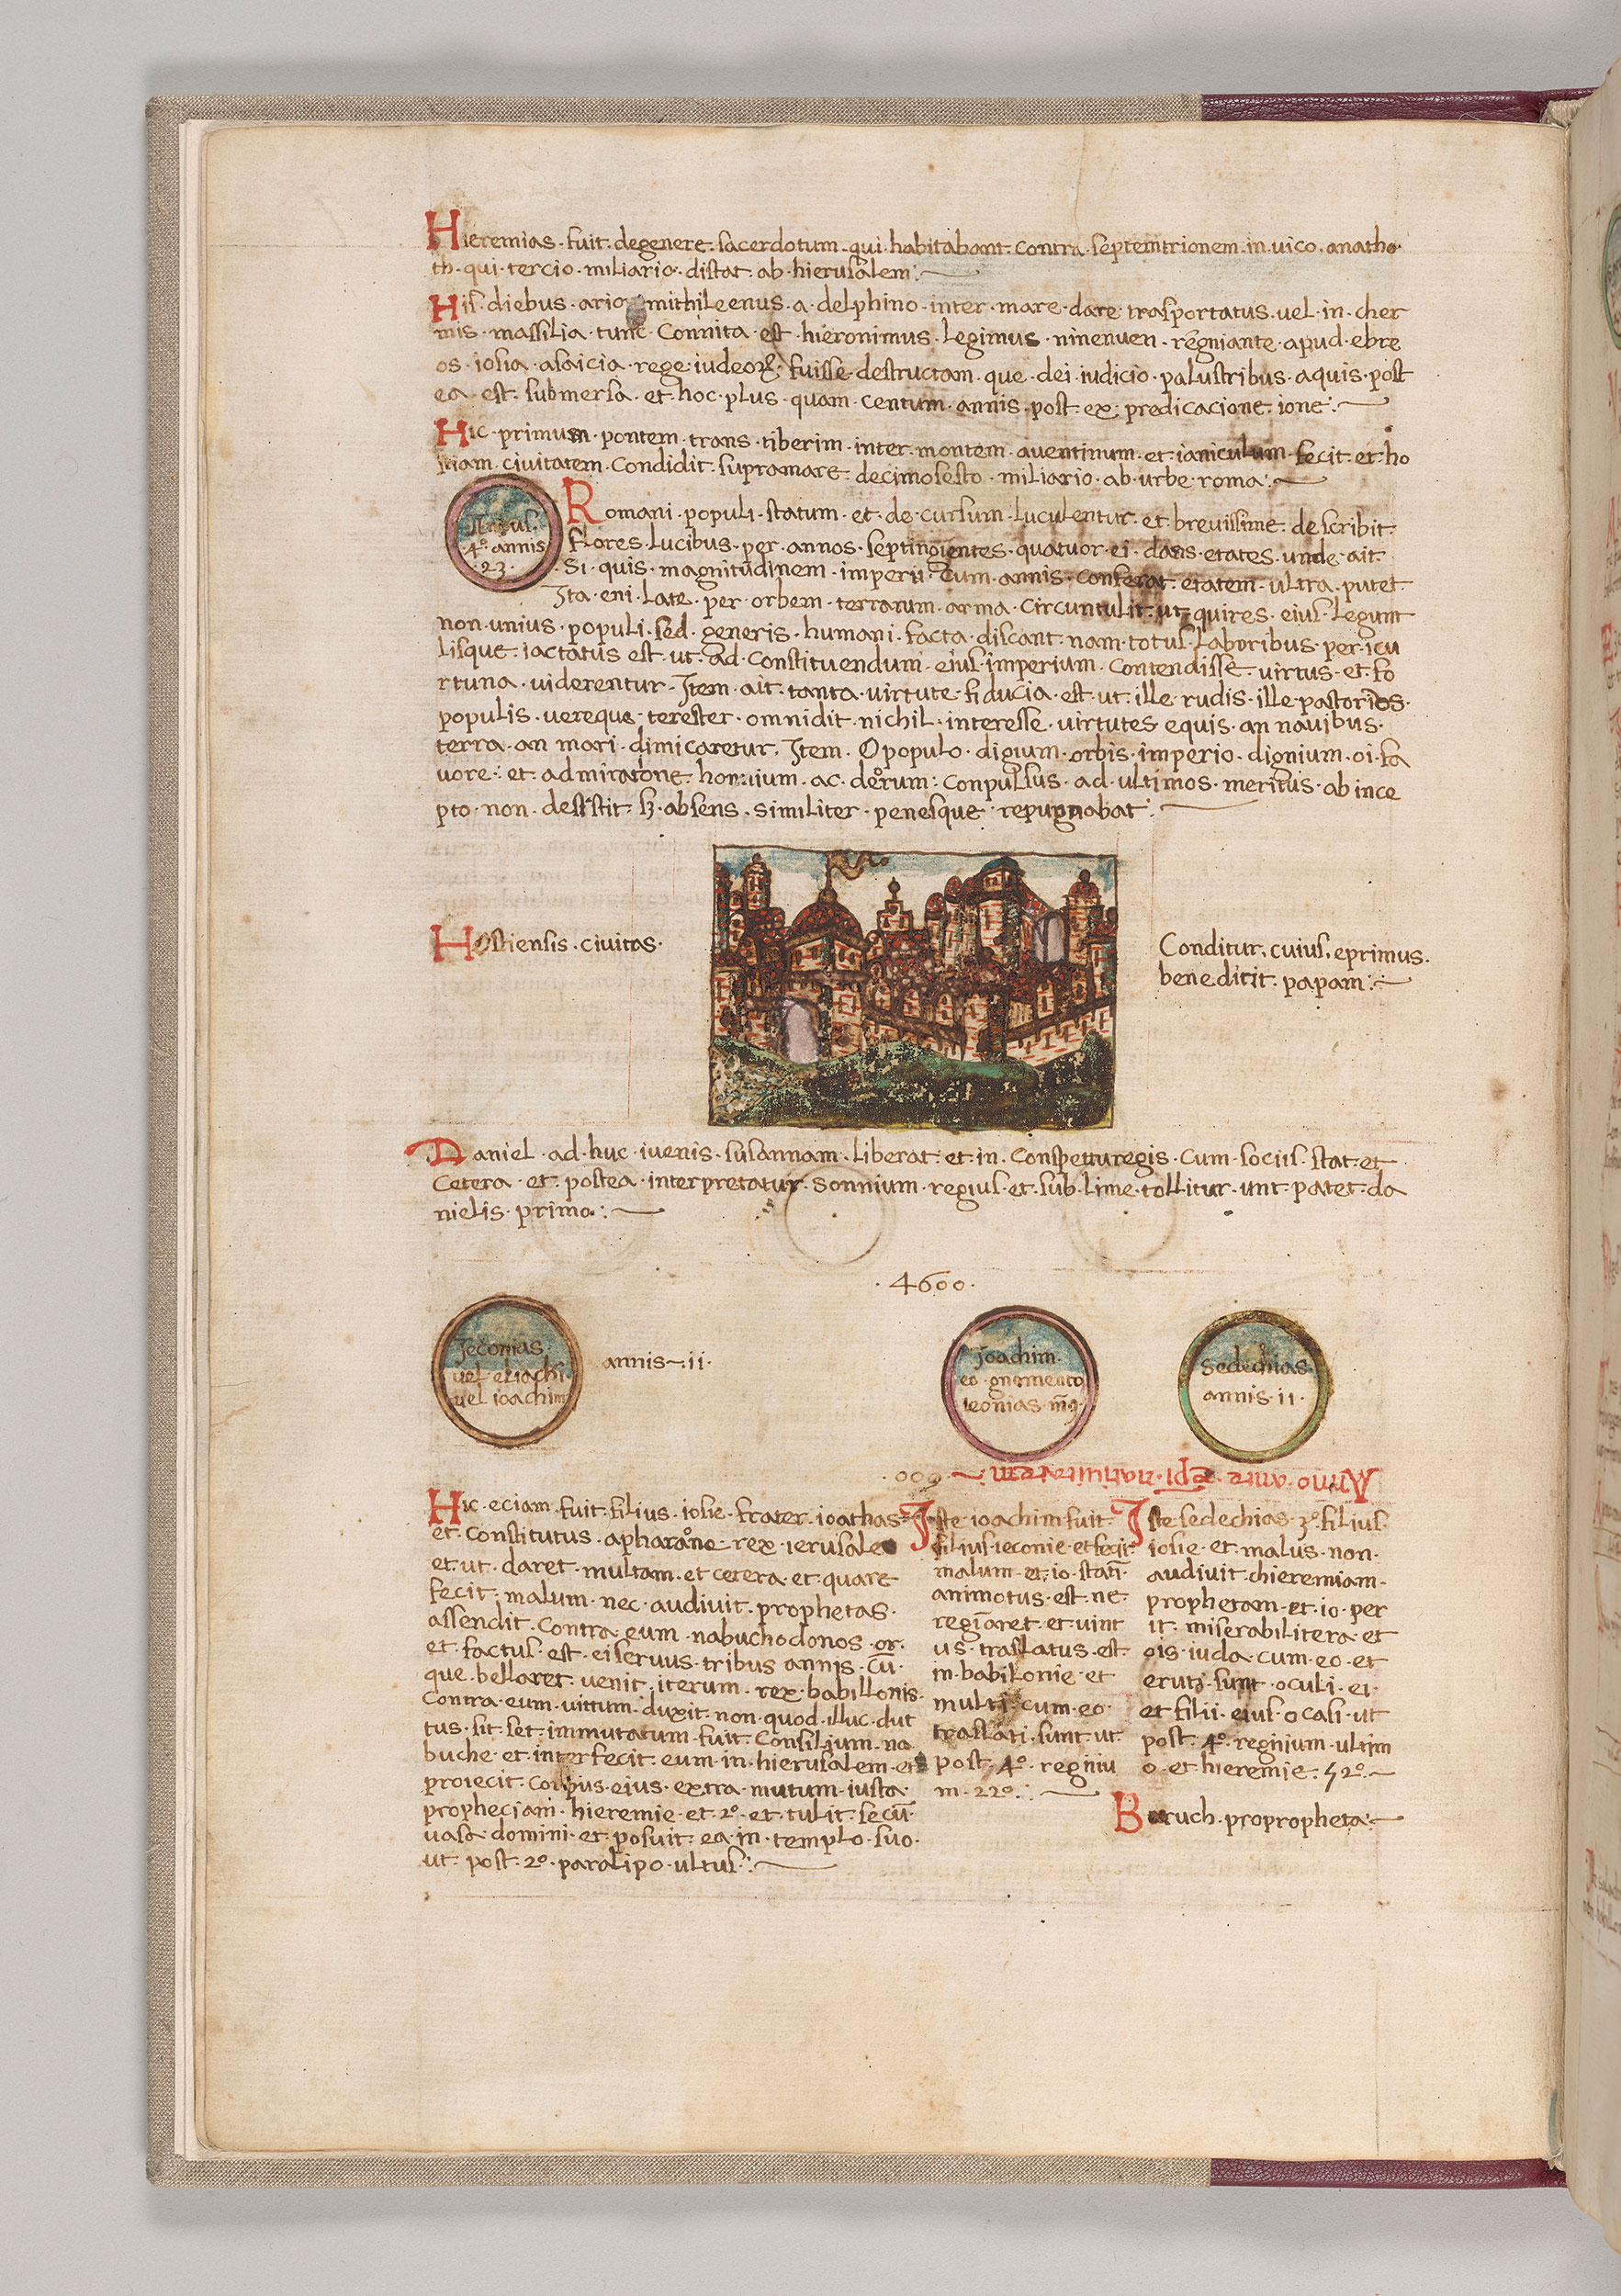 Hieremias · fuit · degenere · sacerdotum · qui · habitabant · contra · septemtrionem · in · vico · anatho
th · qui · tercio · miliario · distat · ab · hierusalem :
His · diebus · ario mithileenus · a · delphino · inter · mare · dare · trasportatus · vel · in · cher
mis · massilia · tunc · Connita · est · hieronimus · legimus · ninenuen · regniante · apud · ebre
os · iosia · asaicia · rege · iudeoꝝ · fuisse · destructam · que · dei · iudicio · palustribus · aquis · post
ea · est · submersa · et · hoc · plus · quam · centum · annis · post · ex · predicacione · ione :
Hic · primum · pontem · trans · tiberim · inter · montem · aventinum · et · ianiculum · fecit · et · ho
stiam · civitatem · Condidit · supramare · decimosesto · miliario · ab · urbe · roma :
· 4º · annis
· 23 ·
Romani · populi · statum · et · de · cursum · luculentur · et · brevissime · describit ·
flores · lucibus · per · annos · septingientes · quatuor · ei · dans · etates · unde · ait ·
Si · quis · magnitudinem · imperii · Cum · annis · conferat · etatem · ultra · putet ·
Ita · eni · late · per · orbem · terrarum · arma · circuntulit · ut · quires · eius · legunt
non · unius · populi · sed · generis · humani · facta · discant · nam · totus · laboribus · per · icu
lisque · iactatus · est · ut · ad · Constituendum · eius · imperium · Contendisse · virtus · et · fo
rtuna · viderentur · Item · ait · tanta · virtute · fiducia · est · ut · ille · rudis · ille · pastorios ·
populis · vereque · terester · omnidit · nichil · interesse · virtutes · equis · an · navibus ·
terra · an · mari · dimicaretur · Item · O populo · digium · orbis · imperio · dignium · oi · fa
vore · et · admiratone · hominum · ac · deorum : Conpulsus · ad · ultimos · meritus · ab ince
pto · non · destitit · sz · absens · similiter · penesque · repugnabat :
Hostiensis · civitas ·
Conditur · cuius · eprimus ·
benedicit · papam :
Daniel · ad · huc · iuenis · susannam · liberat · et · in · Conspettu regis · Cum · sociis · stat · et
Cetera · et · postea · interpretatur · Sonnium · regius · et · sub · lime · tollitur · unt · patet · da
nielis · primo :
· 4600 ·
Jeconias ·
vel · eliachi
vel ioachim
annis · ii ·
Joachim ·
co · gnomento
ieonias · m̄q ·
Sedechias ·
annis · ii ·
Anno · ante · xpi · natiuitatem · 600 ·
Hic · eciam · fuit · filius · iosie · frater · ioathas ·
et · Constitutus · apharaone · rex · ierusale
et · ut · daret · multam · et cetera · et · quare
fecit · malum · nec · audivit · prophetas ·
assendit · Contra · eum · nabuchodonos · or ·
et · factus · est · ei servus · tribus · annis · cū ·
que · bellaret · venit · iterum · rex · babillonis ·
Contra · eum · vittum · duxit · non · quod · illuc · dut
tus · sit · set · immutatum · fuit · Consilium · na
buche · et · interfecit · eum · in · hierusalem · et
proiecit · Corpus · eius · extra · mutum · iusta ·
propheciam · hieremie · et · 2º · et · tulit · secū ·
vasa · domini · et · posuit · ea · in · templo · suo ·
ut · post · 2º · paralipo · ultus :
Iste ioachim · fuit ·
filius · ieconie · et fecit ·
malum · et · io · stati ·
animotus · est · ne ·
regnaret · et · vint
us · traslatus · est ·
in · babilonie · et
multi · cum · eo ·
traslati · sunt · ut ·
post · 4º · regniu
m · 22º ·
Iste sedechias · 3º · filius ·
iosie · et · malus · non ·
audivit · hieremiam ·
prophetam · et · io · per
it · miserabilitera · et
ois · iuda · cum · eo · et
eruti · sunt · oculi · ei ·
et filii · eius · ocasi · ut
post · 4º · regnium · ultim
o · et hieremie · 52º ·
Baruch · propropheta :